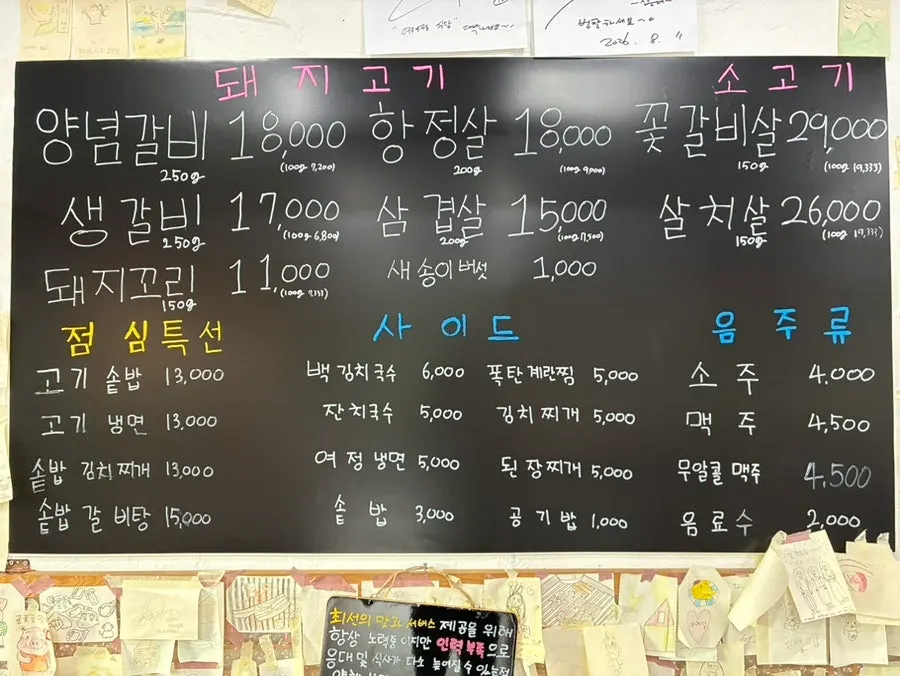 "여여정 식당" 대박나세요~
번창하세요~
2026. 8. 11
돼지고기
양념갈비 18,000
250g (100g 7,200)
항정살 18,000
200g (100g 9,000)
생갈비 17,000
250g (100g 6,800)
삼겹살 15,000
200g (100g 7,500)
돼지꼬리 11,000
150g (100g 7,333)
새송이버섯 1,000
소고기
꽃갈비살 29,000
150g (100g 19,333)
살치살 26,000
150g (100g 17,333)
점심특선
고기 솥밥 13,000
고기 냉면 13,000
솥밥 김치찌개 13,000
솥밥 갈비탕 15,000
사이드
백김치국수 6,000
잔치국수 5,000
여정냉면 5,000
솥밥 3,000
폭탄계란찜 5,000
김치찌개 5,000
된장찌개 5,000
공기밥 1,000
음주류
소주 4.000
맥주 4,500
무알콜맥주 4.500
음료수 2,000
최선의 맛과 서비스 제공을 위해
항상 노력중이지만 인력부족으로
응대 및 식사가 다소 늦어질 수 있는점